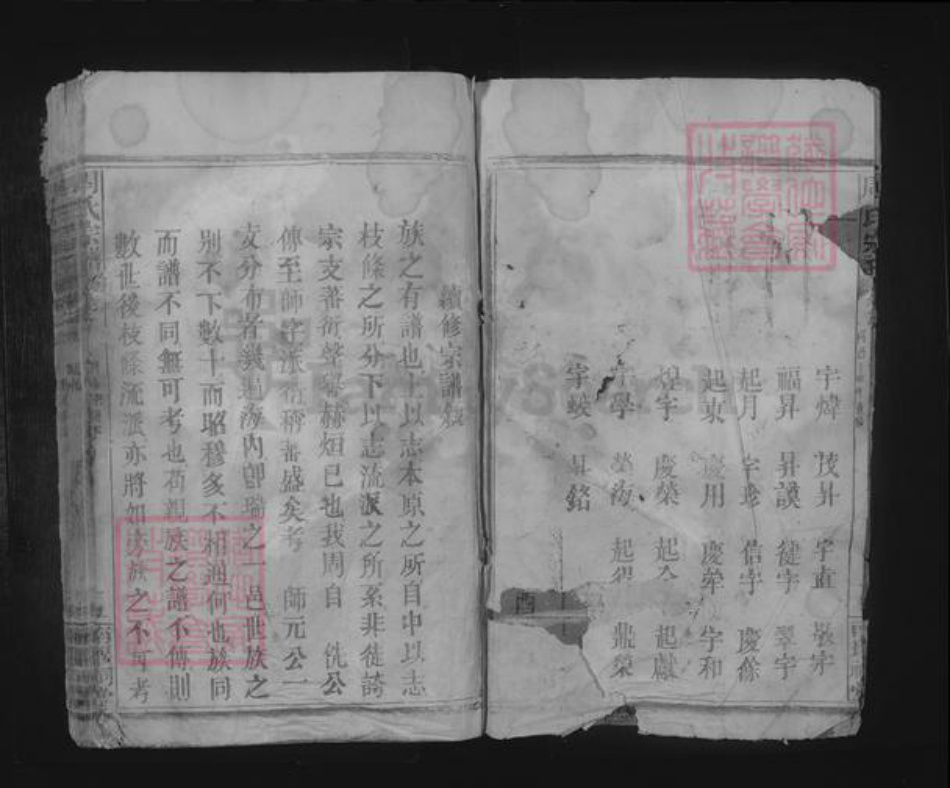 宇煒　茂昇　宇直　敬宇
福昇　昇謨　健宇　翠宇
起月　宇珍　信宇　慶餘
起東　慶用　慶犖　宇和
煌宇　慶榮　起　起獻
宇學　榮海　起　鼎榮
宇蛟　昇銘
酉
續修宗譜敘
族之有譜也上以志本原之所自中以志
枝條之所分下以志流派之所系非徒誇
宗支蕃衍聲譽赫烜已也我周自　侁公
傳至師字派衍稱蕃盛矣考　師元公一
支分布者幾遍海內卽瑞之一邑世族之
別不下數十而昭穆多不相通何也族同
而譜不同無可考也茍親族之譜不傳則
數世後枝條流派亦將如　族之不可考
周氏宗譜